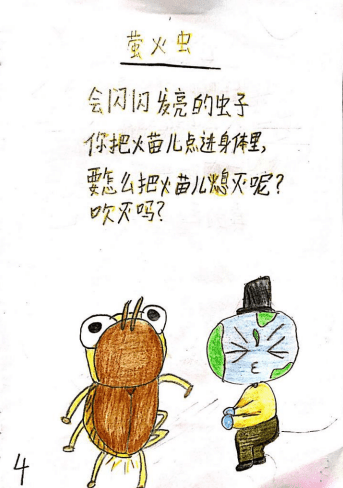 萤火虫
会闪闪发亮的虫子
你把火苗儿点进身体里,
要怎么把火苗儿熄灭呢?
吹灭吗?
4